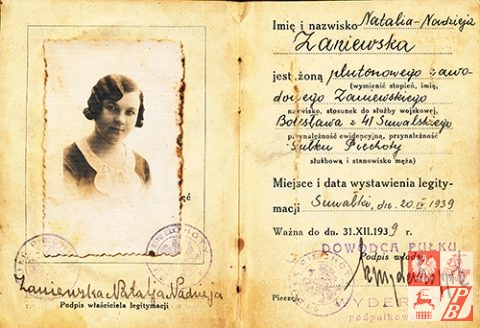 ć
Zaniewska Natalja Nadzieja
Podpis właściciela legitymacji
Imię i nazwisko Natalia-Nadzieja
Zaniewska
jest żoną plutonowego zawo-
(wymienić stopień, imię,
dowego Zaniewskiego
nazwisko, stosunek do służby wojskowej,
Bolesława z 41 Suwalskiego
przynależność ewidencyjną, przynależność
Pułku Piechoty
służbową i stanowisko męża)
Miejsce i data wystawienia legity-
macji Suwałki, dn. 20.IV 1939
Ważna do dn. 31.XII.1939 r.
DOWÓDCA PUŁKU
Podpis władzy
Pieczęć
WYDER
podpułkow